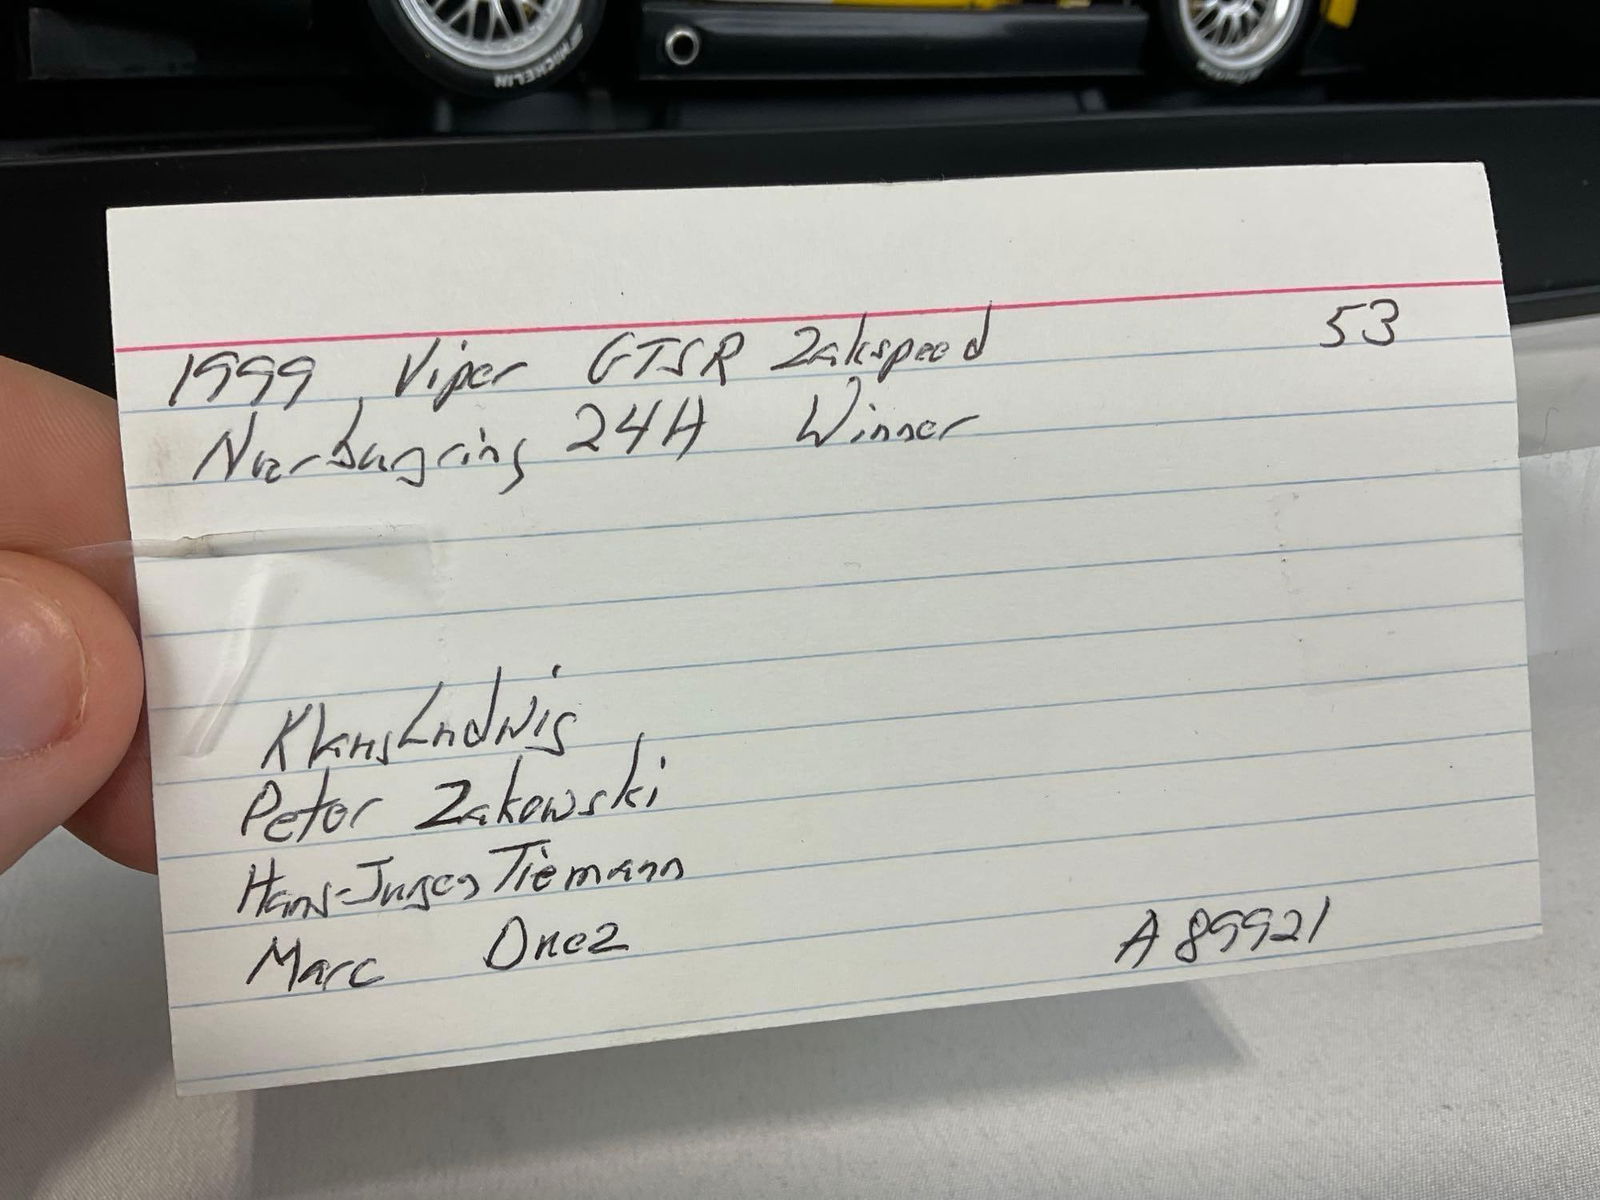 MICHELIN
1999 Viper GTSR Zakspeed 53
Nurburgring 24H Winner
Klaus Ludwig
Peter Zakowski
Hans-Jurgen Tiemann
Marc Duez
A 89921